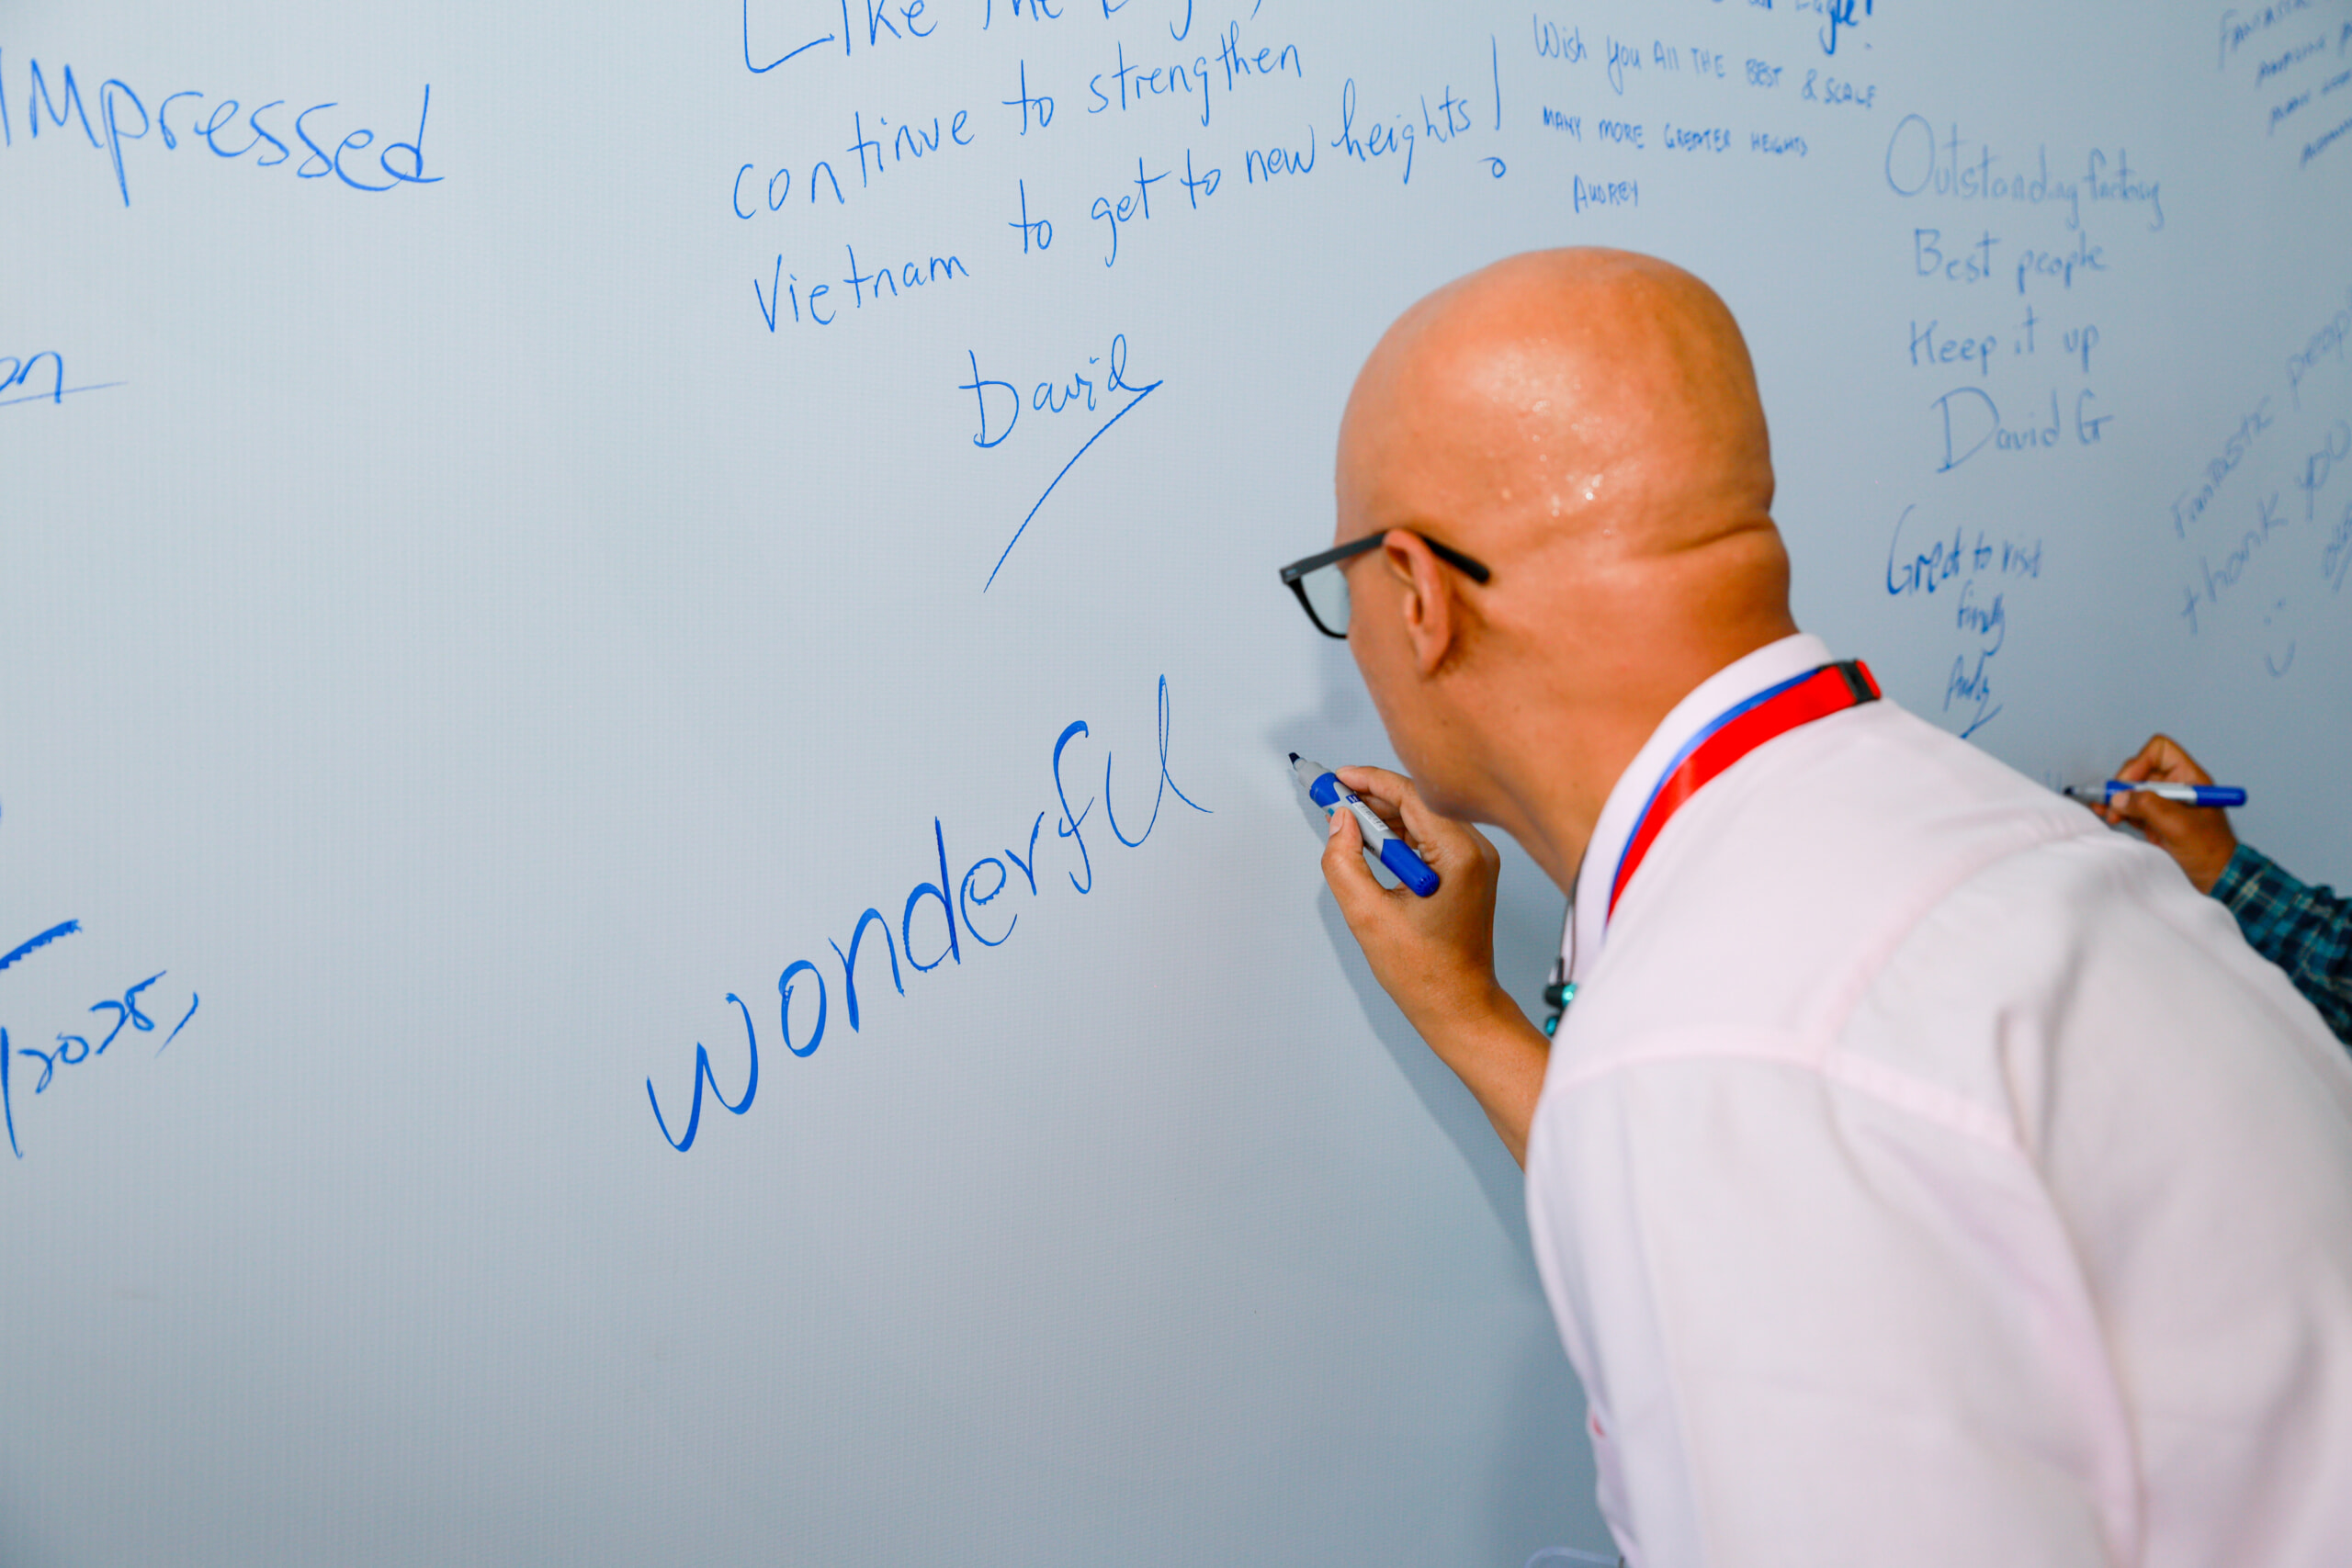 Impressed
Like the
continue to strengthen
Vietnam to get to new heights!
David
wonderful
Wish you All THE BEST & SCALE
MANY MORE GREATER HEIGHTS
AUDREY
Outstanding factory
Best people
Keep it up
David G
Great to visit
finally
Fantastic
Fantastic people
thank you